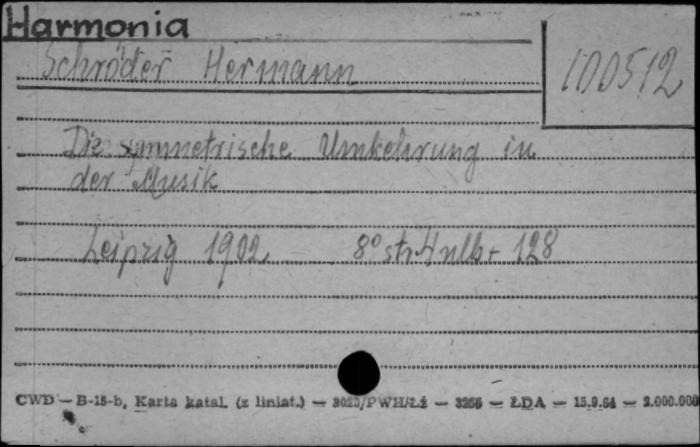 Harmonia
Schröder Hermann
100512
Die symmetrische Umkehrung in
der Musik
Leipzig 1902 8° str. 4 nlb + 128
CWD — B-15-b, Karta katal. (z liniat.) — 3025/PWH/Łż — 3256 — ŁDA — 15.9.64 — 2.000.000